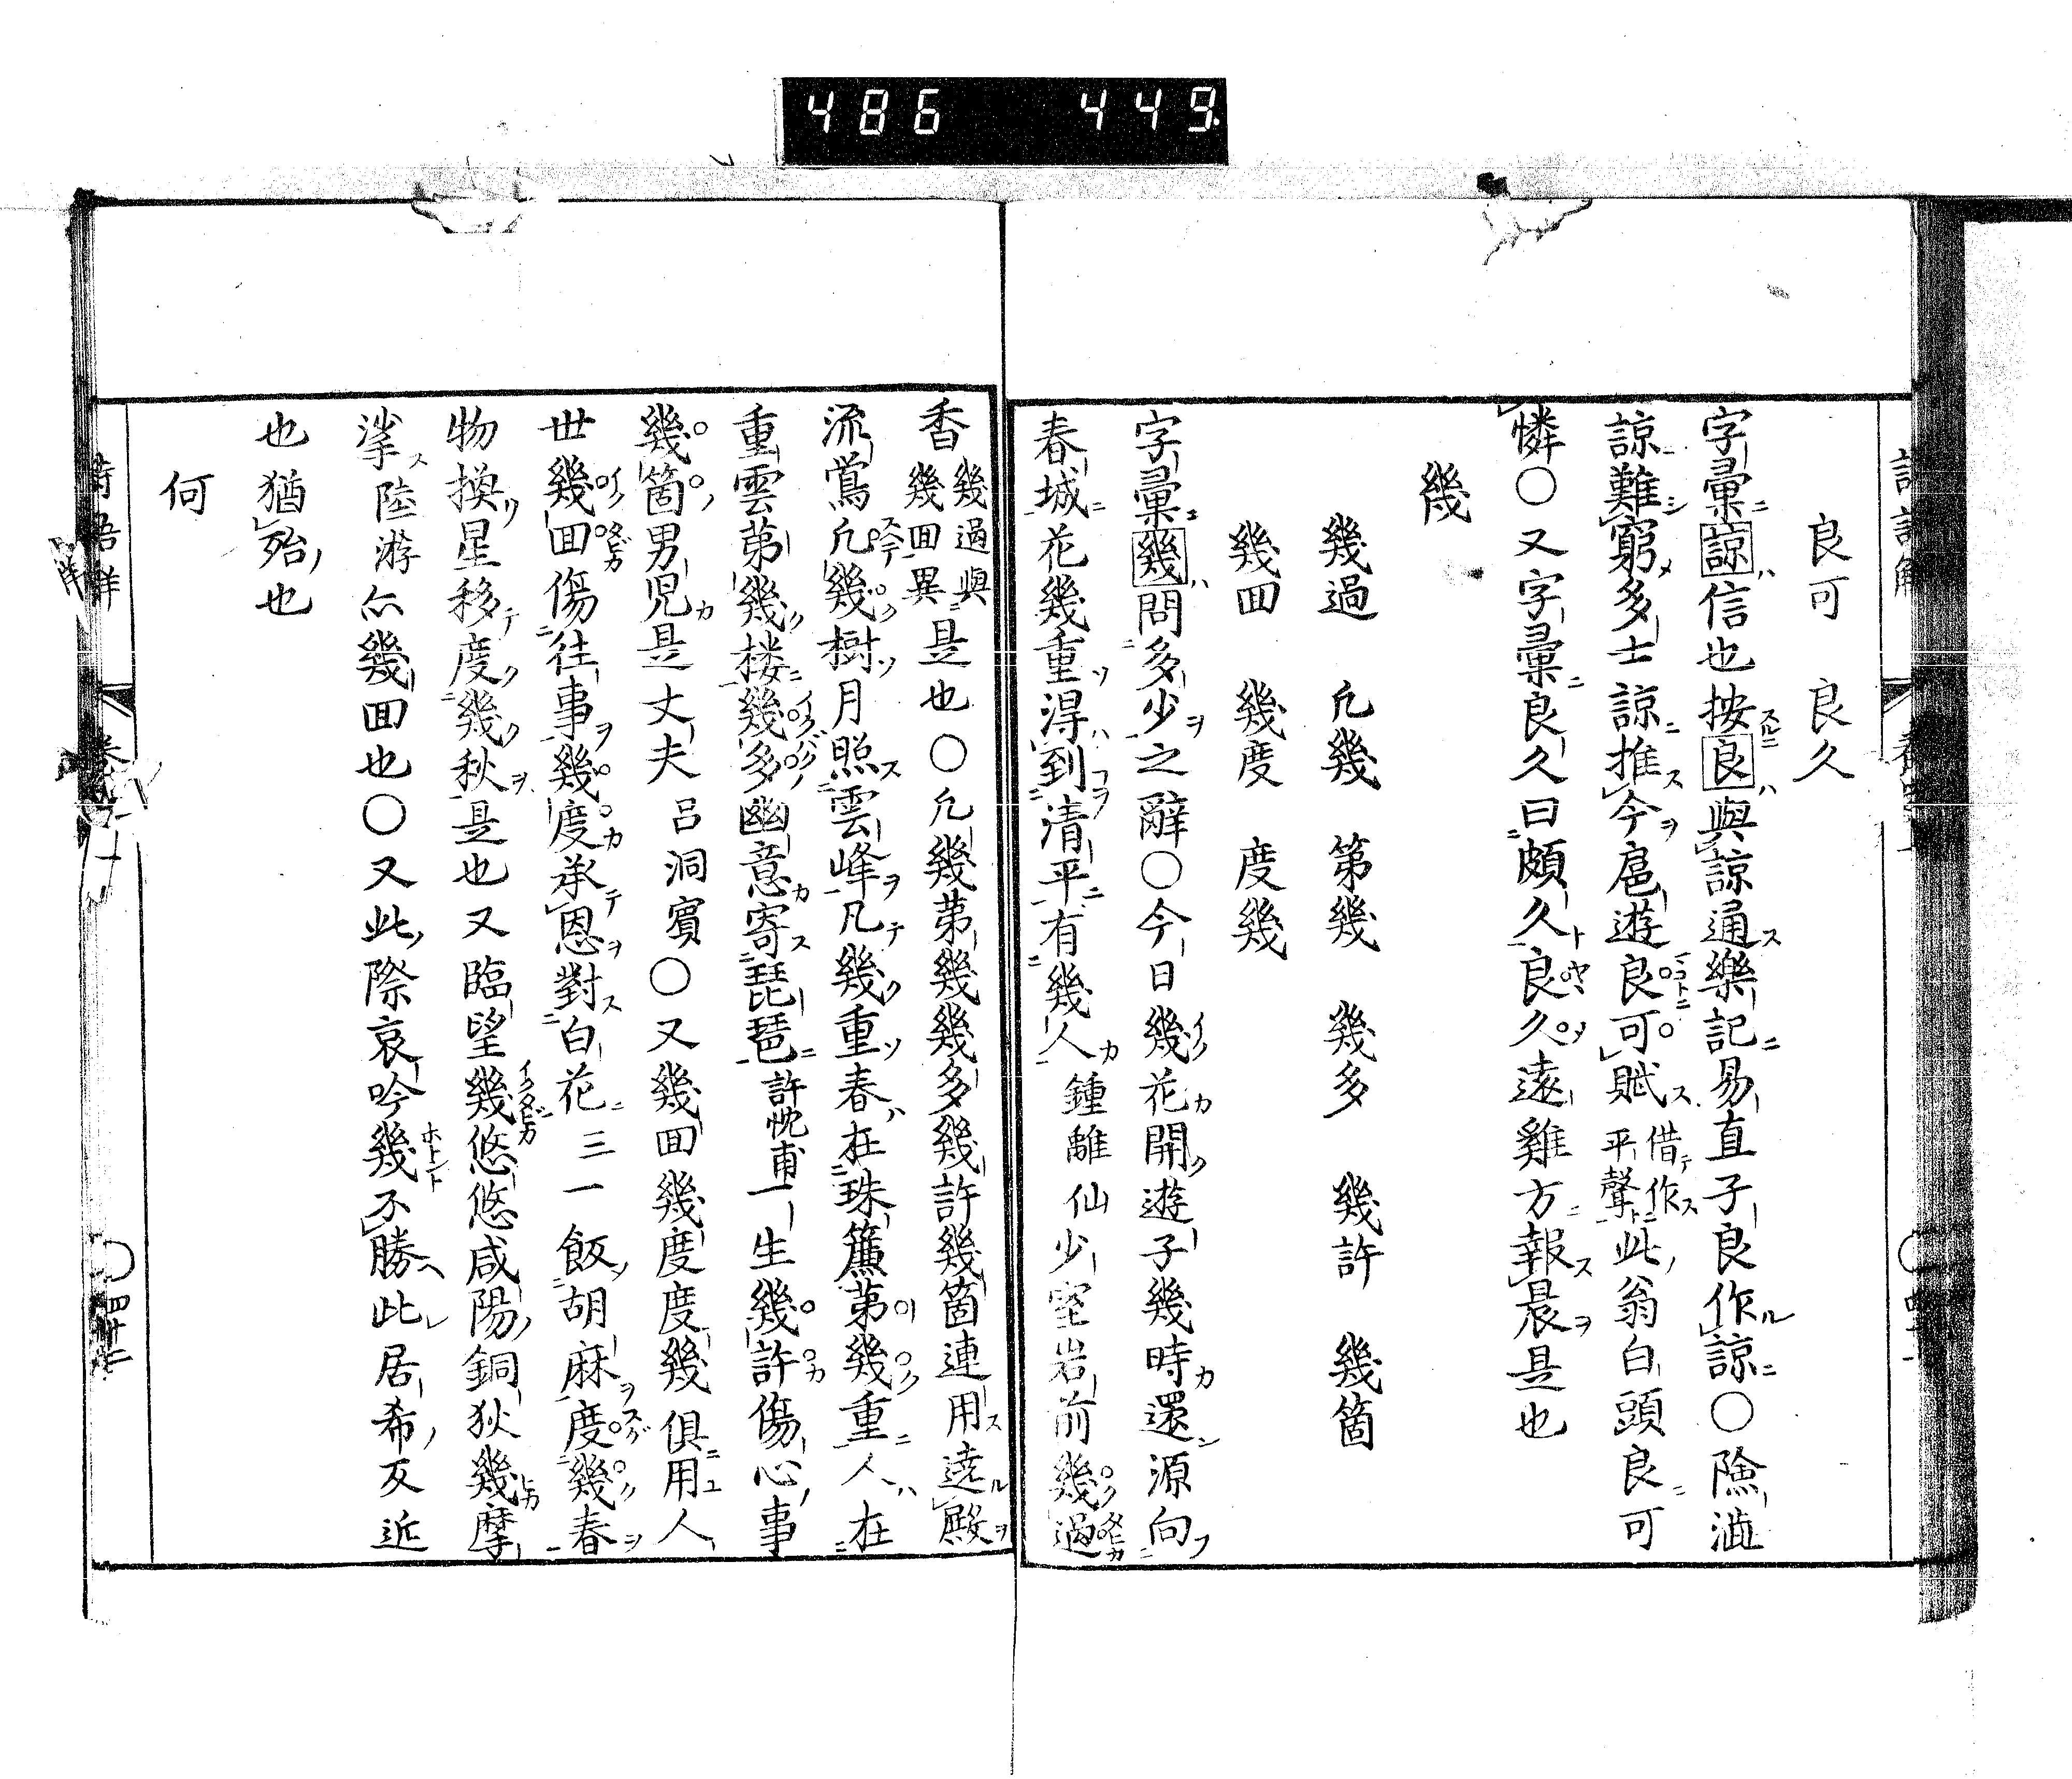 486 449
良可 良久
字彙諒信也按良與諒通樂記易直子良作諒〇險澁
諒難窮多士諒推今扈遊良可賦借作平聲此翁白頭良可
憐〇又字彙良久曰頗久良久遠雞方報晨是也
幾
幾過 凢幾 第幾 幾多 幾許 幾箇
幾回 幾度 度幾
字彙幾問多少之辭〇今日幾花開遊子幾時還源向
春城花幾重得到清平有幾人鍾離仙少室岩前幾過
香幾過與幾回異是也〇凢幾苐幾幾多幾許幾箇連用遶殿
流鶯凢幾樹月照雲峰凡幾重春在珠簾苐幾重人在
重雲苐幾楼幾多幽意寄琵琶許忱甫一生幾許傷心事
幾箇男児是丈夫呂洞賓〇又幾回幾度度幾俱用人
世幾回傷往事幾度承恩對白花三一飯胡麻度幾春
物換星移度幾秋是也又臨望幾悠悠咸陽銅狄幾摩
挲陸游亦幾回也〇又此際哀吟幾不勝此居希反近
也猶殆也
何
四十二